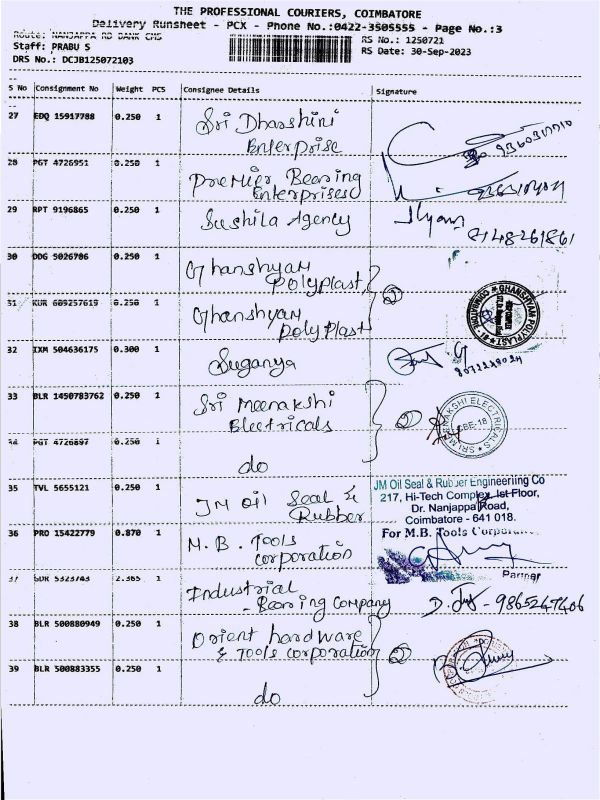 THE PROFESSIONAL COURIERS, COIMBATORE
Delivery Runsheet - PCX - Phone No.:0422-3505555 - Page No.:3
Route: NANJAPPA RD BANK CMS
RS No.: 1250721
Staff: PRABU S
RS Date: 30-Sep-2023
DRS No.: DCJB125072103
S No Consignment No Weight PCS Consignee Details Signature
27 EDQ 15917788 0.250 1 Sri Dharshini
Enterprise
28 PGT 4726951 0.250 1 Premier Bearing
Enterprises
29 RPT 9196865 0.250 1 Sushila Agency
8148261861
30 DDG 5026786 0.250 1 Ghanshyam
Polyplast
31 KUR 609257619 0.250 1 Ghanshyam
Polyplast
2
GHANSHYAM POLYPLAST
32 IXM 504636175 0.300 1 Suganya
33 BLR 1450783762 0.250 1 Sri Meenakshi
Electricals
2
SRI MEENAKSHI ELECTRICALS
CBE-18
34 PGT 4726897 0.250 1 do
35 TVL 5655121 0.250 1 JM Oil Seal &
Rubber
JM Oil Seal & Rubber Engineeriing Co
217, Hi-Tech Complex, Ist Floor,
Dr. Nanjappa Road,
Coimbatore - 641 018.
36 PRO 15422779 0.870 1 M.B. Tools
Corporation
For M.B. Tools Corporation
Partner
37 SDR 5323743 2.365 1 Industrial
- Bearing Company
9865247606
38 BLR 500880949 0.250 1 Orient hardware
& Tools Corporation
2
39 BLR 500883355 0.250 1 do